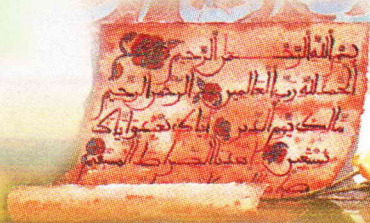 بسم الله الرحمن الرحيم
الحمد لله رب العالمين الرحمن الرحيم
مالك يوم الدين إياك نعبد وإياك
نستعين اهدنا الصراط المستقيم